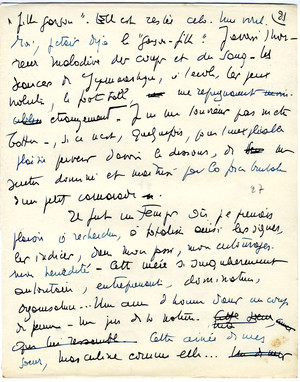 "fille garçon". Elle est restée cela. Un vrai.
21
Moi, j'étais déjà le "garçon-fille". J'avais l'hor-
reur maladive des coups et du sang. Les
séances de gymnastique, à l'école, les jeux
violents, le foot-ball me répugnaient
étrangement. Je ne me souviens pas m'être
battu, si ce n'est, quelquefois, pour l'inexplicable
plaisir pervers d'avoir le dessous, de me
sentir dominé et maîtrisé par la force brutale
d'un petit camarade.
27
Ce fut un temps où je prenais
plaisir à rechercher, à totaliser ainsi les signes,
les indices, dans mon passé, mon entourage,
mon hérédité. Cette mère si singulièrement
autoritaire, entreprenante, dominatrice,
organisatrice... Une âme d'homme dans un corps
de femme. Un jeu de la nature.
Cette aînée de mes
sœurs, masculine comme elle...